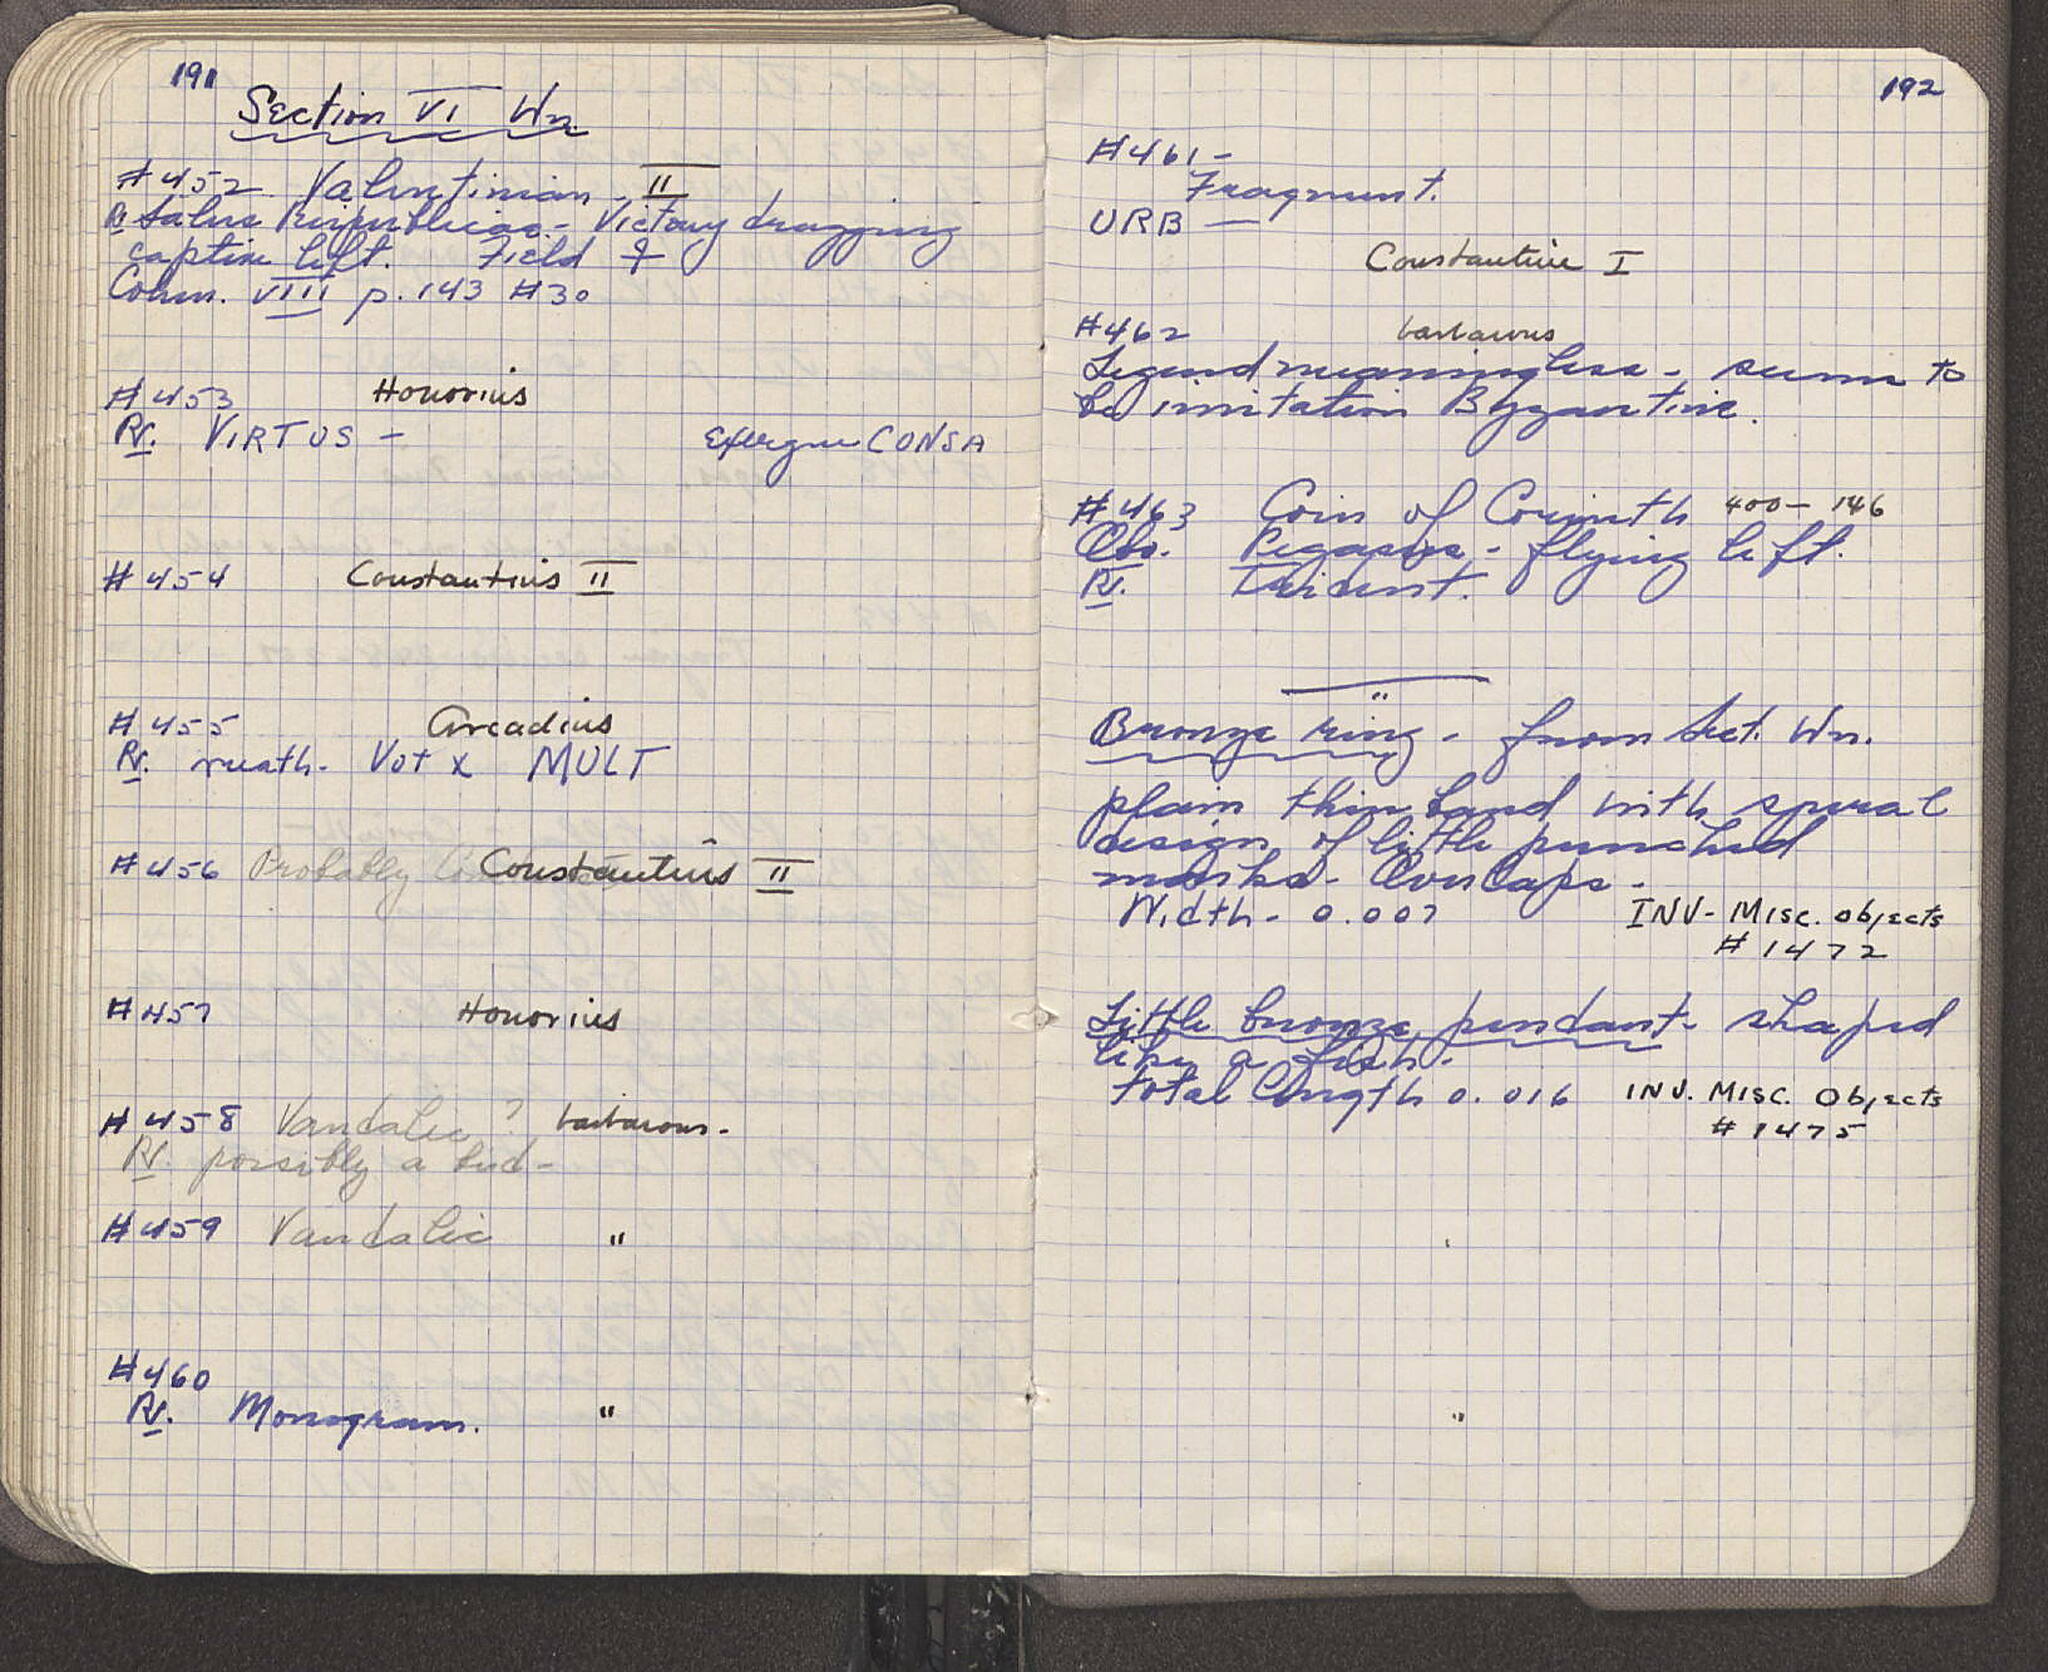 191
Section VI Wn.
#452 Valentinian II
Rv. Salus Reipublicae - Victory dragging
captive left. Field
Cohen. VIII p. 143 #30
#453 Honorius
Rv. VIRTUS - Exergue CONSA
#454 Constantius II
#455 Arcadius
Rv. wreath - Vot X MULT
#456 Probably Constantius II
#457 Honorius
#458 Vandalic ? barbarous -
Rv. possibly a bird -
#459 Vandalic "
#460
Rv. Monogram. "
192
#461 -
Fragment.
URB —
Constantine I
#462 barbarous
Legend meaningless - seems to
be imitation Byzantine.
#463 Coin of Corinth 400 - 146
Obv. Pegasus - flying left.
Rv. Trident.
"
Bronze ring - from Sect. Wn.
plain thin band with spiral
design of little punched
marks - Overlaps -
Width - 0.007 INV - Misc. Objects
#1472
Little bronze pendant - shaped
like a fish -
total length 0.016 INV. MISC. Objects
#1475
"